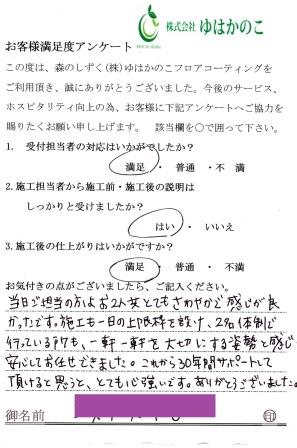 株式会社 ゆはかのこ
お客様満足度アンケート
この度は、森のしずく(株)ゆはかのこフロアコーティングを
ご利用頂き、誠にありがとうございました。今後のサービス、
ホスピタリティ向上の為、お客様に下記アンケートへご協力を
賜りたくお願い申し上げます。 該当欄を○で囲って下さい。
1. 受付担当者の対応はいかがでしたか?
満足 ・ 普通 ・ 不満
2. 施工担当者から施工前・施工後の説明は
しっかりと受けましたか?
はい ・ いいえ
3. 施工後の仕上がりはいかがですか?
満足 ・ 普通 ・ 不満
お気付きの点がございましたら、ご記入ください。
当日ご担当の方はお2人共とてもさわやかで感じが良
かったです。施工も一日の上限枠を設け、2名体制で
行っている所も、一軒一軒を大切にする姿勢と感じ
安心してお任せできました。これから30年間サポートして
頂けると思うと、とても心強いです。ありがとうございました。
御名前 印